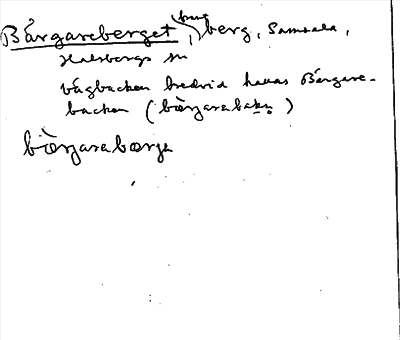 Bärgareberget, berg, Samsala,
Halsbergs sn
vägbacken bredvid kallas Bärgare-
backen (bærjarabakn)
bærjarabærja